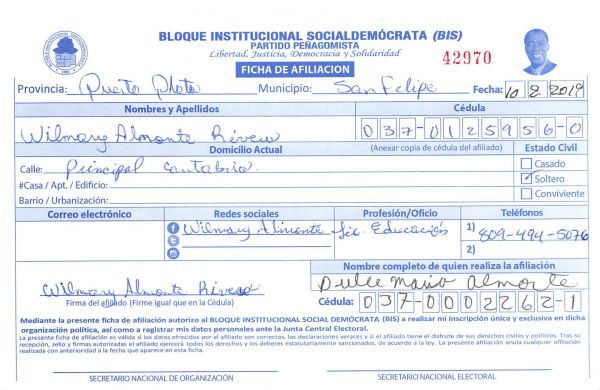 BLOQUE INSTITUCIONAL SOCIALDEMÓCRATA (BIS)
PARTIDO PEÑAGOMISTA
Libertad, Justicia, Democracia y Solidaridad
42970
FICHA DE AFILIACION
Provincia: Puerto Plata Municipio: San Felipe Fecha: 10 2 2019
Nombres y Apellidos Cédula
Wilmary Almonte Rivera 037-0125956-0
Domicilio Actual (Anexar copia de cédula del afiliado) Estado Civil
Calle: Principal cantabria Casado
#Casa / Apt. / Edificio: Soltero
Barrio / Urbanización: Conviviente
Correo electrónico Redes sociales Profesión/Oficio Teléfonos
Wilmary Almonte Lic. Educación 1) 809-494-5076
2)
Nombre completo de quien realiza la afiliación
Wilmary Almonte Rivera Dulce Maria Almonte
Firma del afiliado (Firme igual que en la Cédula) Cédula: 037-0002262-1
Mediante la presente ficha de afiliación autorizo al BLOQUE INSTITUCIONAL SOCIAL DEMÓCRATA (BIS) a realizar mi inscripción única y exclusiva en dicha
organización política, así como a registrar mis datos personales ante la Junta Central Electoral.
La presente ficha de afiliación es válida si los datos ofrecidos por el afiliado son correctos, las declaraciones veraces y si el afiliado tiene el disfrute de sus derechos civiles y políticos. Tras su
recepción, sello y firmas autorizadas el afiliado ejercerá todos los derechos y los deberes estatutariamente sancionados, de acuerdo a la ley. La presente afiliación anula cualquier afiliación
realizada con anterioridad a la fecha que aparece en esta ficha.
SECRETARIO NACIONAL DE ORGANIZACIÓN SECRETARIO NACIONAL ELECTORAL